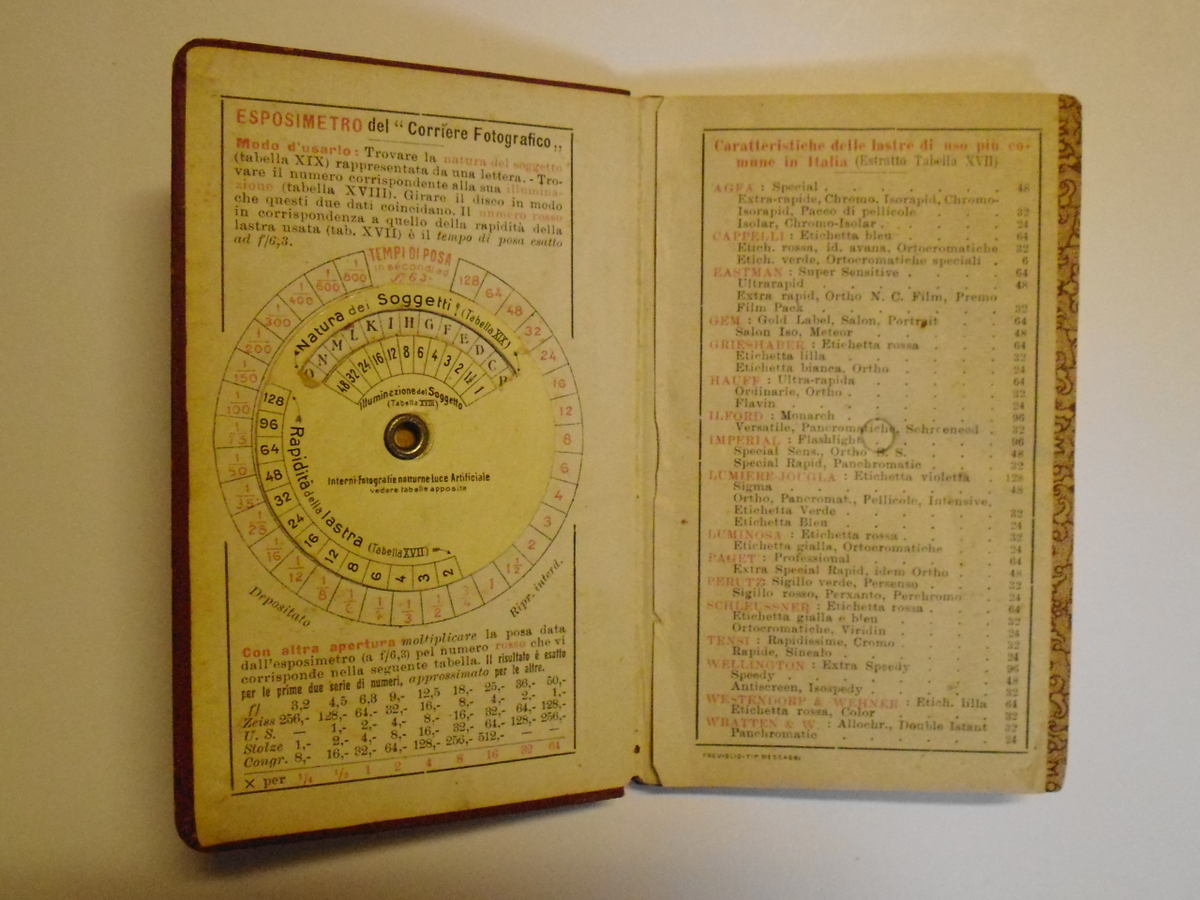 ESPOSIMETRO del “ Corriere Fotografico „
Modo d'usarlo : Trovare la natura del soggetto
(tabella XIX) rappresentata da una lettera. - Tro-
vare il numero corrispondente alla sua illumina-
zione (tabella XVIII). Girare il disco in modo
che questi due dati coincidano. Il numero rosso
in corrispondenza a quello della rapidità della
lastra usata (tab. XVII) è il tempo di posa esatto
ad f/6,3.
TEMPI DI POSA
in secondi ad
f: 6,3
128 64 48 32 24 16 12 8 6 4 3 2 1½ 1 3/4 1/2 1/3 1/4 1/6 1/8 1/12 1/16 1/25 1/35 1/50 1/75 1/100 1/150 1/200 1/300 1/400 1/600 1/800
Natura dei Soggetti (Tabella XIX)
N M L K I H G F E D C
48 32 24 16 12 8 6 4 3 2 1½ 1
Illuminazione del Soggetto
(Tabella XVIII)
Interni-Fotografie notturne Luce Artificiale
vedere tabelle apposite
Rapidità della lastra (Tabella XVII)
128 96 64 48 32 24 16 12 8 6 4 3 2
Depositato
Ripr. interd.
Con altra apertura moltiplicare la posa data
dall'esposimetro (a f/6,3) pel numero rosso che vi
corrisponde nella seguente tabella. Il risultato è esatto
per le prime due serie di numeri, approssimato per le altre.
f/ 3,2 4,5 6,3 9,- 12,5 18,- 25,- 36,- 50,-
Zeiss 256,- 128,- 64,- 32,- 16,- 8,- 4,- 2,- 1,-
U. S. — 1,- 2,- 4,- 8,- 16,- 32,- 64,- 128,-
Stolze 1,- 2,- 4,- 8,- 16,- 32,- 64,- 128,- 256,-
Congr. 8,- 16,- 32,- 64,- 128,- 256,- 512,- — —
× per 1/4 1/2 1 2 4 8 16 32 64
Caratteristiche delle lastre di uso più co-
mune in Italia (Estratto Tabella XVII)
AGFA : Special . 48
Extra-rapide, Chromo, Isorapid, Chromo-
Isorapid, Pacco di pellicole 32
Isolar, Chromo-Isolar . 24
CAPPELLI : Etichetta bleu . 64
Etich. rossa, id. avana, Ortocromatiche 32
Etich. verde, Ortocromatiche speciali . 6
EASTMAN : Super Sensitive . 64
Ultrarapid . 48
Extra rapid, Ortho N. C. Film, Premo
Film Pack . 32
GEM : Gold Label, Salon, Portrait 64
Salon Iso, Meteor . 48
GRIESHABER : Etichetta rossa . 64
Etichetta lilla . 32
Etichetta bianca, Ortho . 24
HAUFF : Ultra-rapida . 64
Ordinarie, Ortho . 32
Flavin . 24
ILFORD : Monarch . 96
Versatile, Pancromatiche, Schreened . 32
IMPERIAL : Flashlight . 96
Special Sens., Ortho S. S. . 48
Special Rapid, Panchromatic . 32
LUMIERE-JOUGLA : Etichetta violetta 128
Sigma . 48
Ortho, Pancromat., Pellicole, Intensive,
Etichetta Verde . 32
Etichetta Bleu . 24
LUMINOSA : Etichetta rossa . 32
Etichetta gialla, Ortocromatiche 24
PAGET : Professional . 64
Extra Special Rapid, idem Ortho . 48
PERUTZ: Sigillo verde, Persenso . 32
Sigillo rosso, Perxanto, Perchromo . 24
SCHLEUSSNER : Etichetta rossa . 64
Etichetta gialla e bleu . 32
Ortocromatiche, Viridin . 24
TENSI : Rapidissime, Cromo . 32
Rapide, Sinealo . 24
WELLINGTON : Extra Speedy . 96
Speedy . 48
Antiscreen, Isospedy . 32
WESTENDORF & WEHNER : Etich. lilla 64
Etichetta rossa, Color . 32
WRATTEN & W. : Allochr., Double Istant 32
Panchromatic . 24
PREVIGLIO-TIP MESSAGGI